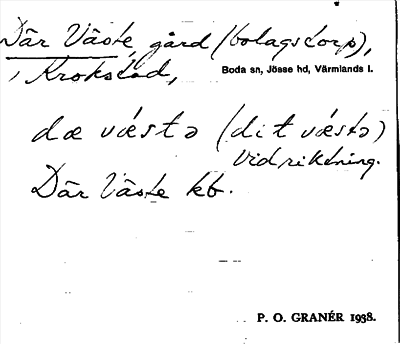 Där Väste, gård (bolagstorp),
i Krokstad,
Boda sn, Jösse hd, Värmlands l.
dæ væstə (dit væstə)
vid riktning.
Där Väste kb.
P. O. GRANÉR 1938.